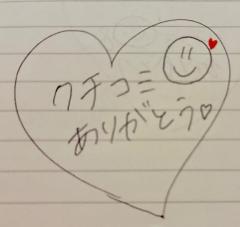 クチコミ
ありがとう♡